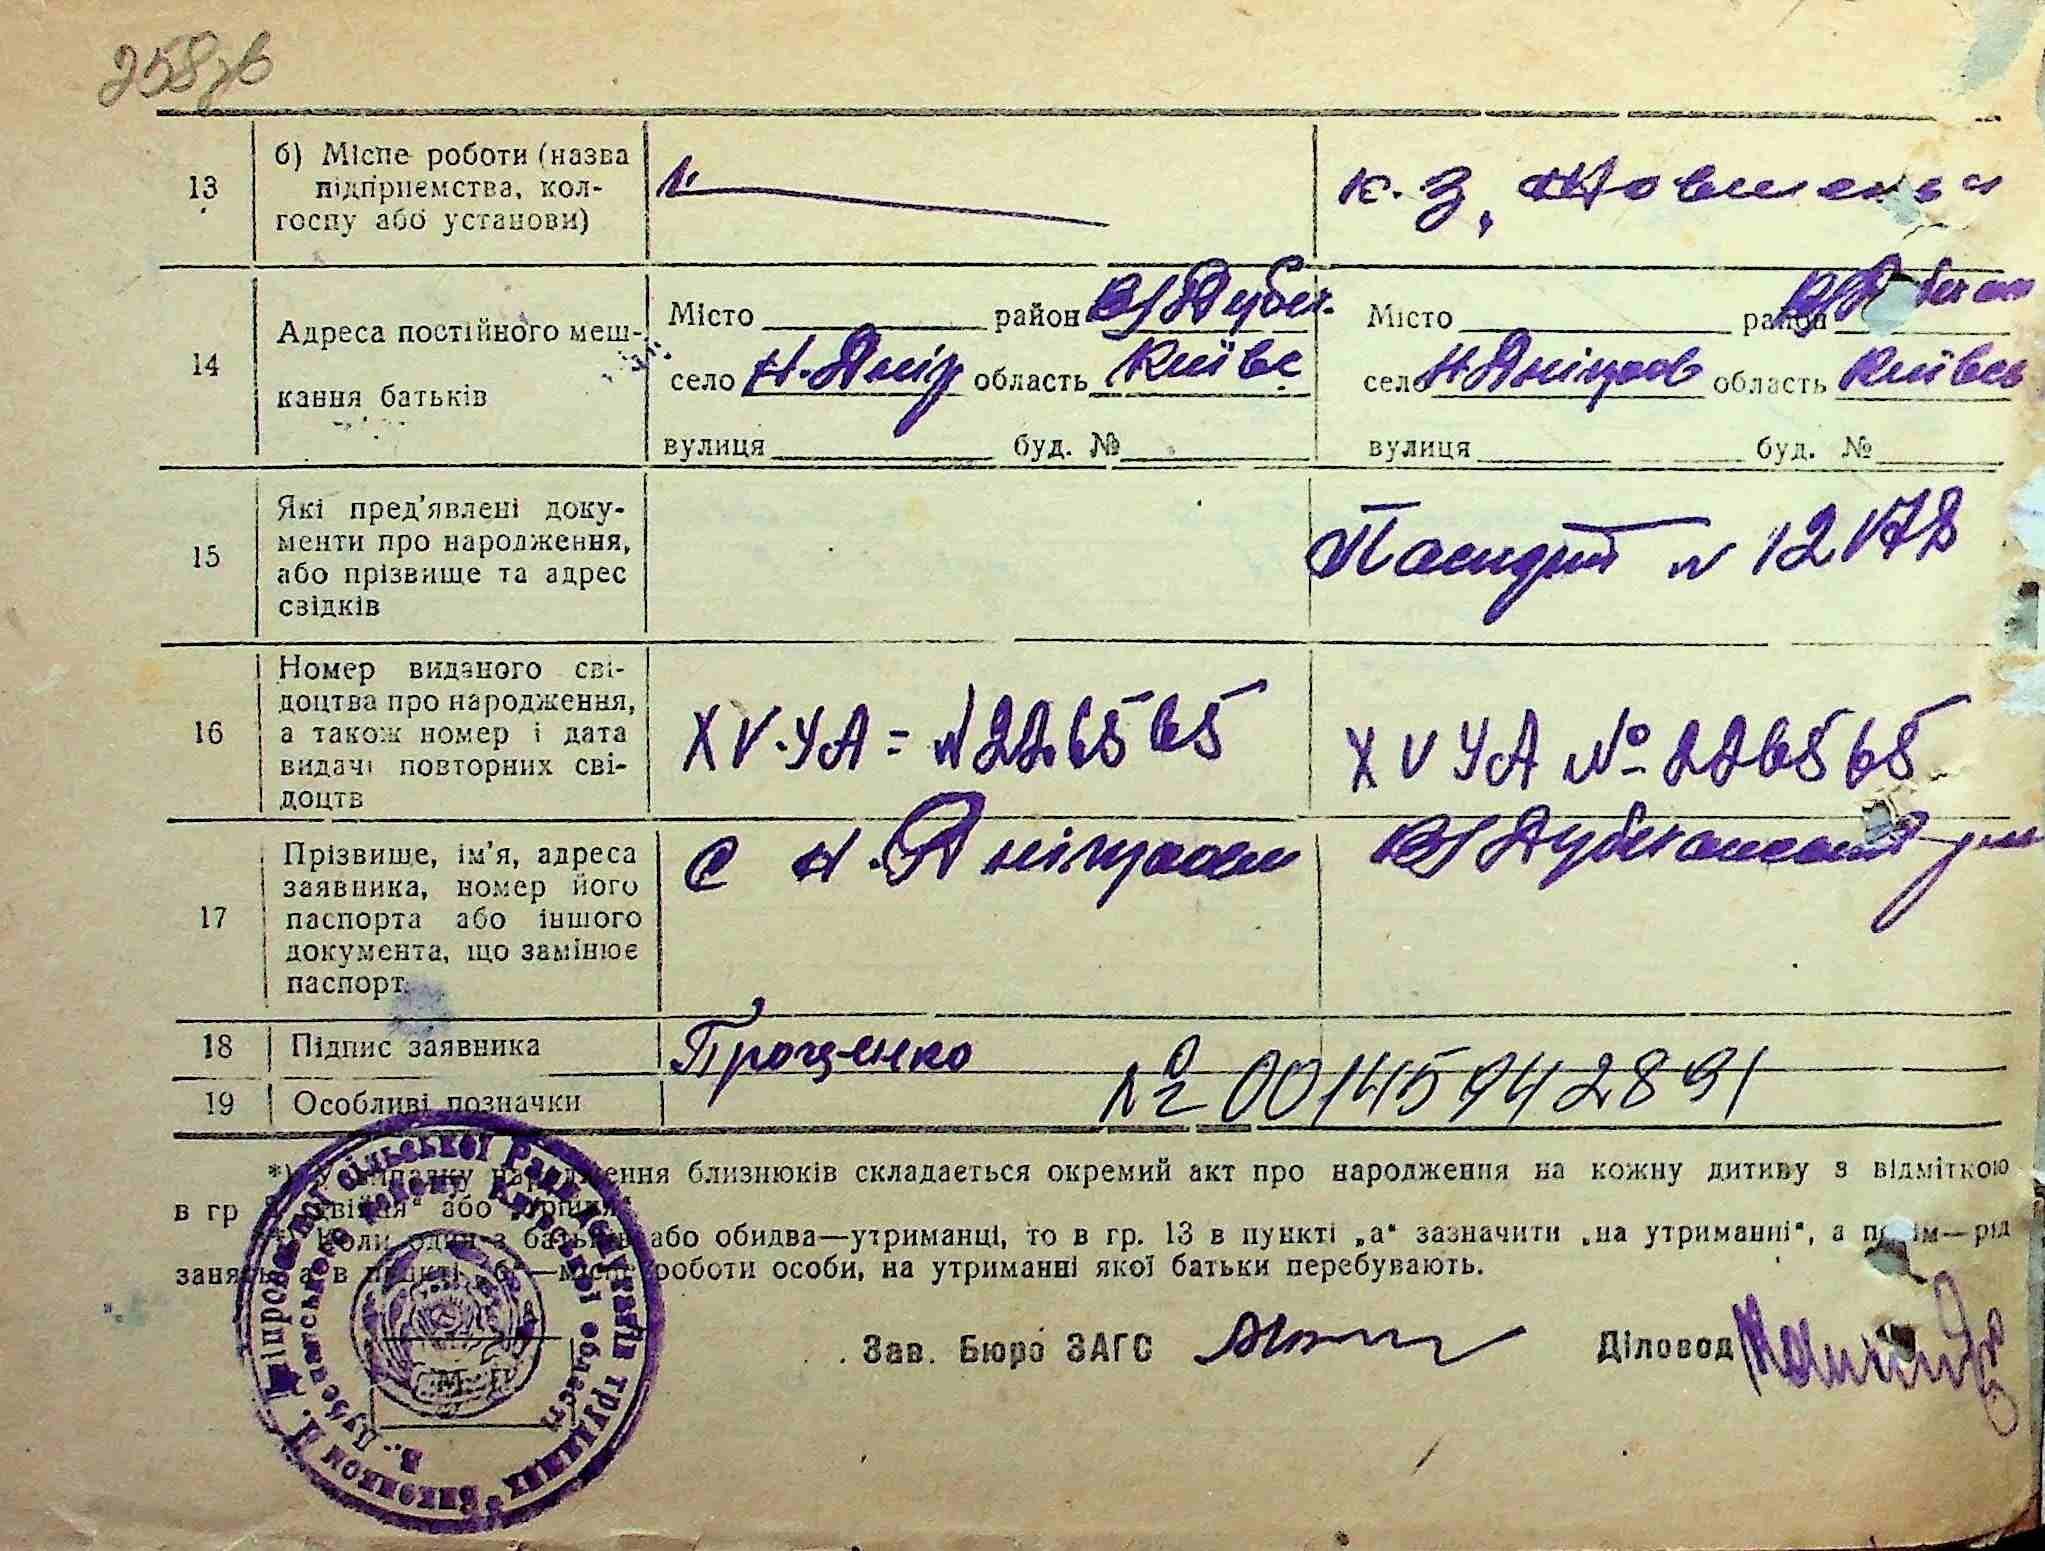 258зв
13
б) Місце роботи (назва
підприємства, кол-
госпу або установи)
к. з.
14
Адреса постійного меш-
кання батьків
Місто район В/Дубеч.
село Н. Дніпр область Київс
вулиця буд. №
Місто район
село Н Дніпров область Київсь
вулиця буд. №
15
Які пред’явлені доку-
менти про народження,
або прізвище та адрес
свідків
Паспорт N 12178
16
Номер виданого сві-
доцтва про народження,
а також номер і дата
видачі повторних сві-
доцтв
XV-УА = N 226565
XV УА № 226565
17
Прізвище, ім’я, адреса
заявника, номер його
паспорта або іншого
документа, що замінює
паспорт.
С Н. Дніпровськ
18
Підпис заявника
Проценко
19
Особливі позначки
№ 00145942891
*) У випадку народження близнюків складається окремий акт про народження на кожну дитину з відміткою
в гр „двійня“ або „трійня“
Коли один з батьків або обидва—утриманці, то в гр. 13 в пункті „а“ зазначити „на утриманні“, а потім—рід
занять, а в пункті „б“—місце роботи особи, на утриманні якої батьки перебувають.
М. П.
Зав. Бюро ЗАГС
Діловод
Виконком Н. Дніпровської сільської Ради депутатів трудящих
В.-Дубечанського району Київської області